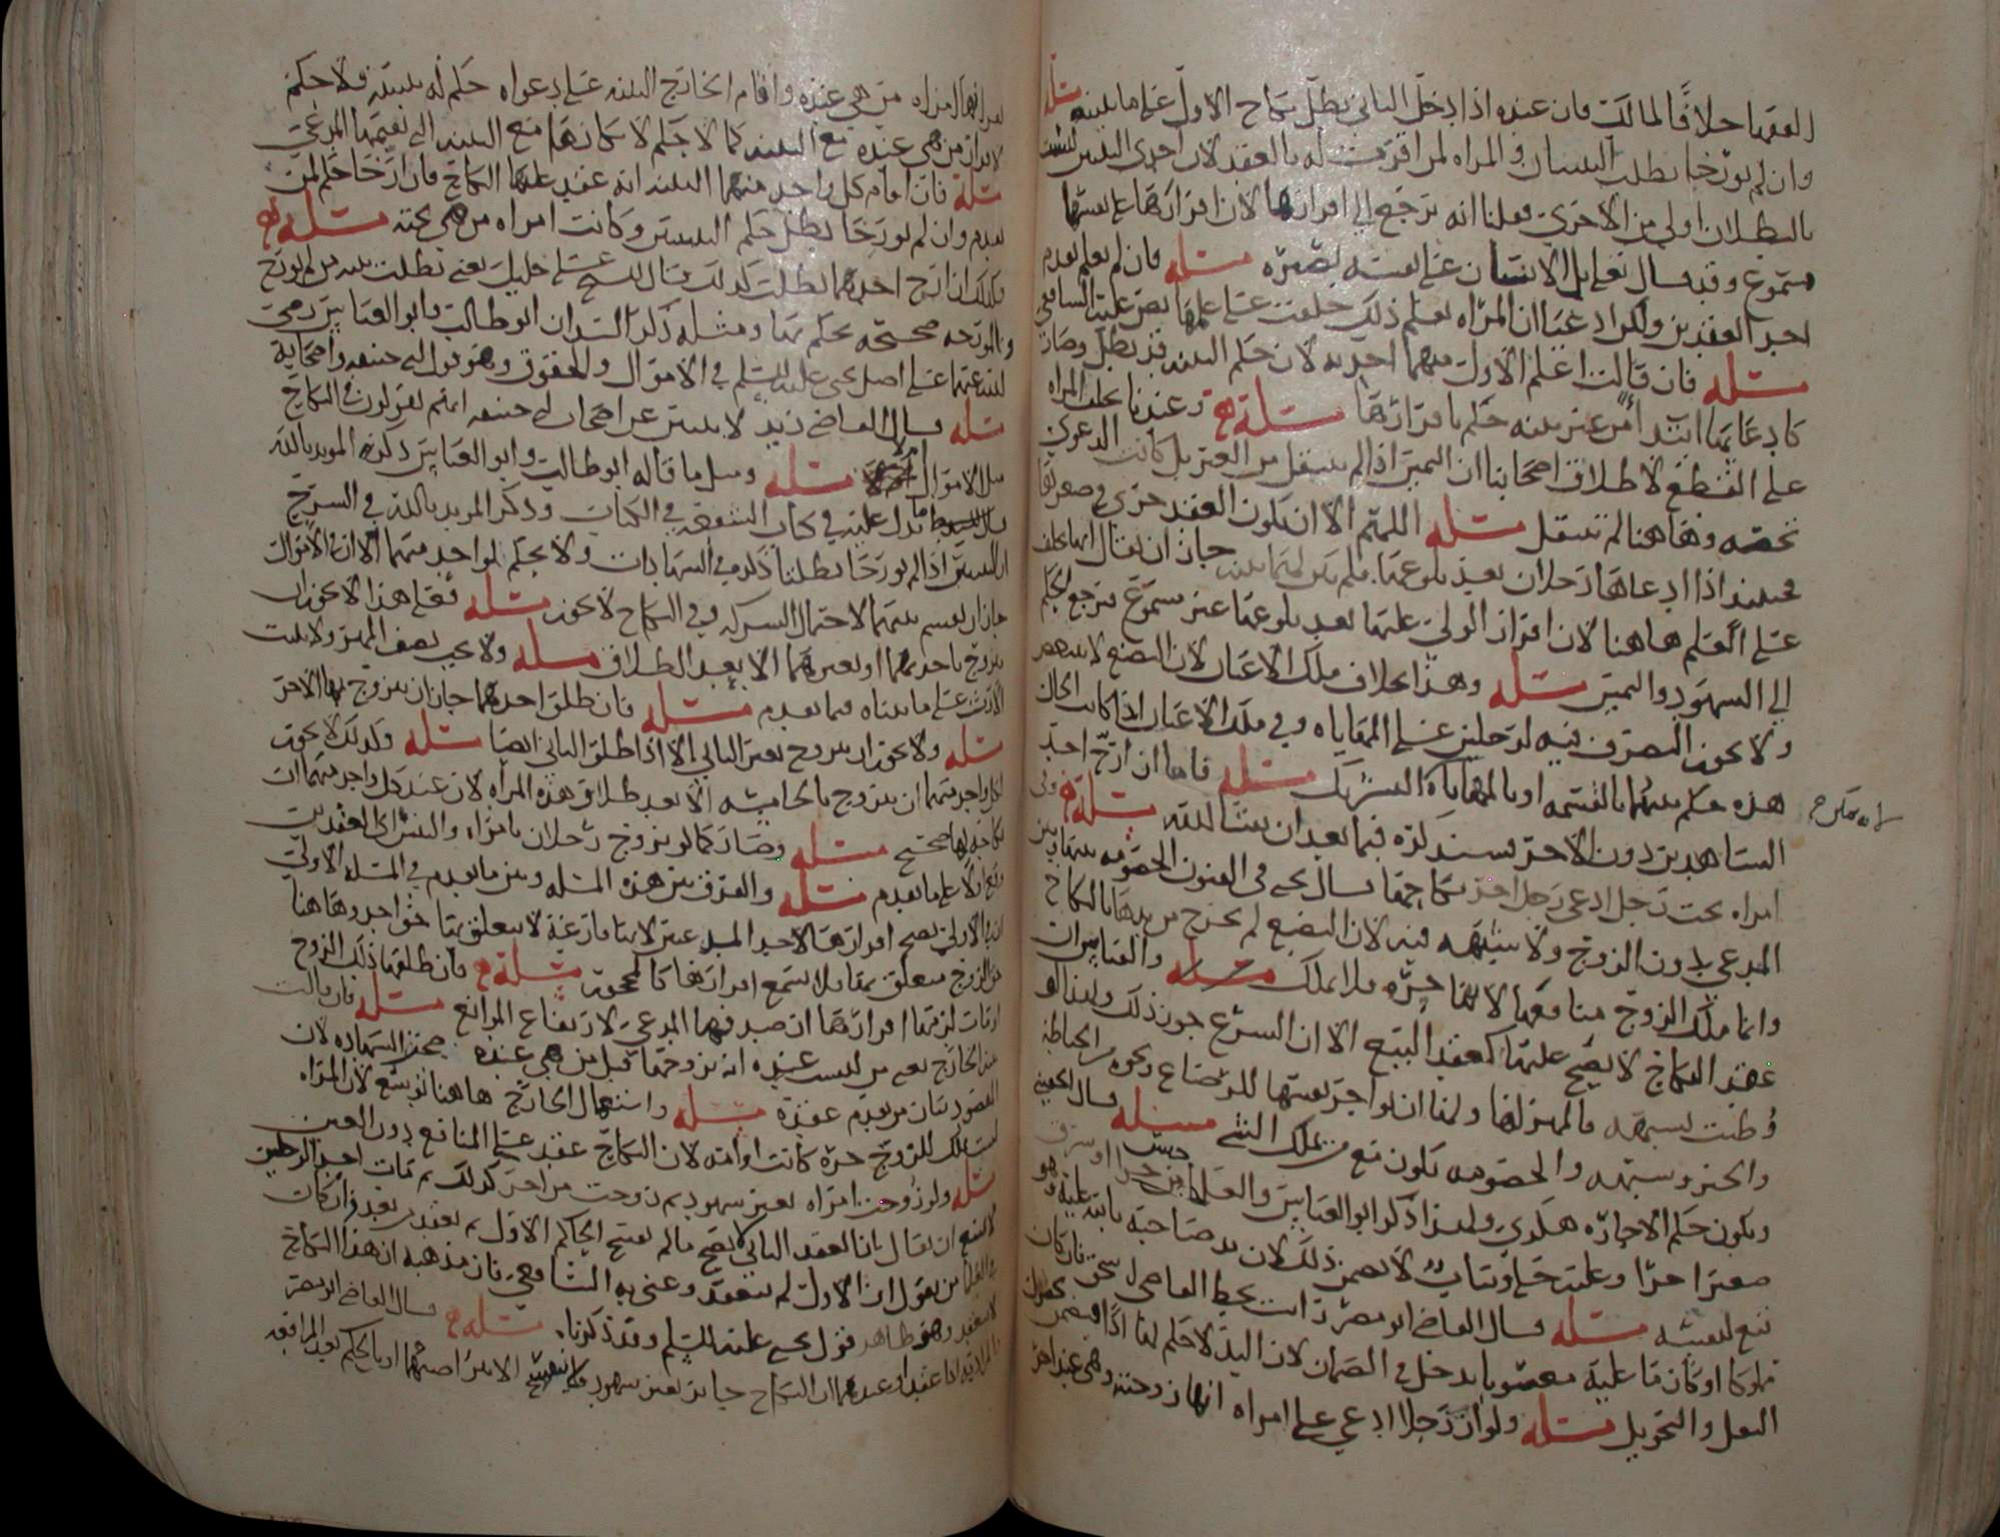 الفقها خلافًا لمالك فان عنده اذا دخل الثاني بطل نكاح الاول على ما بينه مسئلة
وان لم يورخا بطلت البينتان والمراه لمن اقرت له بالعقد لان احدى البينتين ليست
بالبطلان اولى من الاخرى فقلنا انه يرجع الى اقرارها لان اقرارها على نفسها
مسموع وقد قال تعالى بل الانسان على نفسه بصيره مسئله فان لم يعلم تقدم
احد العقدين ولكن ادعيا ان المراه تعلم ذلك حلفت على علمها نص عليه الشافعي
مسئله فان قالت اعلم الاول منهما احد به لان حكم البينه قد بطل وصار
كادعائهما ابتداً من غير بينه حكم باقرارها مسئلة وعندنا تحلف المراه
على القطع لاطلاق اصحابنا ان اليمين اذا لم ينتقل من الغير بل كانت الدعوى
تخصه وهاهنا لم تنتقل مسئله اللهم الا ان يكون العقد جرى في صغرها
فحينئذ اذا ادعاها رجلان بعد بلوغها فلم يكن لهما بينه جاز ان يقال انها تحلف
على العلم هاهنا لان اقرار الولي عليها بعد بلوغها غير مسموع فيرجع الحكم
الى الشهود واليمين مسئله وهذا بخلاف ملك الاعيان لان البضع لا
ولا يجوز التصرف فيه لرجلين على المهاياه وفي ملك الاعيان اذا كانت الحال
هذه حكم بينهما بالقسمه او بالمهاياة التشريك مسئله فاما ان ارخ احد
الشاهدين دون الاخر فسنذكره فيما بعد ان شا الله مسئلة
امراه تحت رجل ادعى رجل اخر نكاحها قال يحيى في الفنون الخصومه بينها وبين
المدعي دون الزوج ولا شبهه فيه لان البضع لم يخرج من يدها بالنكاح
وانما ملك الزوج منافعها لانها حره فلا تملك مسئله والقياس ان
عقد النكاح لا يصح عليها كعقد البيع الا ان الشرع جوز ذلك ولهذا لو
وطئت بشبهه فالمهر لها ولهذا ان لو اجر نفسها للرضاع ونحوه من الخياطه
والخبز وشبهه والخصومه تكون مع من يملك الشي مسئله قال يحيى
ويكون حكم الاجاره هكذى ولهذا ذكر ابو العباس والعلما
صغيرا حرا وعليه حلي وثياب لا يضمن ذلك لان يد صاحبه ثابته عليه وهو
تبع لنفسه مسئله قال القاضي ابو مضر رايت بخط القاضي فان كان
مملوكا او كان ما عليه مغصوبا يدخل في الضمان لان اليد لا حكم لها
النقل والتحويل مسئله ولو ان رجلا ادعى على امراه انها زوجته وهي عند اخر
من هي عنده واقام الخارج البينه على دعواه حكم له ببينته ولا حكم
لاقرار من هي عنده مع البينه كما لا حكم لانكارها مع البينه التي يقيمها المدعي
مسئلة فان اقام كل واحد منهما البينه انه عقد عليها النكاح فان ارخا حكم لمن
تقدم وان لم يورخا بطل حكم البينتين وكانت امراه من هي تحته مسئلة
وكذلك ان ارخ احدهما بطلت كذلك قال الشيخ علي خليل يعني بطلت بينه من لم يورخ
والمورخه صحيحه يحكم بها ومثله ذكر السيدان ابو طالب وابو العباس رضي
الله عنهما على اصل يحيى عليه السلم في الاموال والحقوق وهو قول ابي حنيفه واصحابه
مسئله قال القاضي زيد عن اصحاب ابي حنيفه انهم يقولون في النكاح
مثل الاموال مسئله ومثل ما قاله ابو طالب وابو العباس ذكره المويد بالله
تدل عليه في كتاب الشفعه في الكتاب وذكر المويد بالله في الشرح
ان البينتين اذا لم يورخا بطلتا ذكره في الشهادات ولا يحكم لواحد منهما الا ان في الاموال
جاز ان يقسم بينهما لاحتمال الشركه وفي النكاح لا يجوز مسئله فعلى هذا لا يجوز ان
يتزوج باحدهما او بغيرهما الا بعد الطلاق مسئله ولا يجب نصف المهر ولا يثبت
الارث على ما بيناه فيما تقدم مسئله فان طلق احدهما جاز ان يتزوج بها الاخر
مسئله ولا يجوز ان يتزوج بغير الثاني الا اذا طلق الثاني ايضا مسئله وكذلك لا يجوز
لكل واحد منهما ان يتزوج بالخامسه الا بعد طلاق هذه المراه لان عند كل واحد منهما ان
نكاحه لها صحيح مسئله وصار كما لو تزوج رجلان بامراه والتبس اي العقدين
وقع اولا على ما تقدم مسئله والفرق بين هذه المسئله وبين ما تقدم في المسئله الاولى
ان في الاولى يصح اقرارها لاحد المدعيين لانها فارغة لا يتعلق بها حق احد وهاهنا
حق الزوج متعلق بها فلا يسمع اقرارها كالمحجور مسئلة فان طلقها ذلك الزوج
او مات لزمها اقرارها ان صدقها المدعي لارتفاع المانع مسئله فان قالت
بينة الخارج يعني من ليست عنده انه تزوجها قبل من هي عنده صحت الشهاده لان
المقصود بيان من تقدم عقده مسئله واستعمال الخارج هاهنا توسع لان المراه
ليست ملك للزوج حرة كانت او امه لان النكاح عقد على المنافع دون العين
مسئله ولو زوجت امراه بغير شهود ثم زوجت من اخر كذلك ثم مات احد الزوجين
لا يمتنع ان يقال بان العقد الثاني لا يصح ما لم يفسخ الحاكم الاول ثم يعقد من بعد وان كان
في الفقها من يقول ان الاول لم ينعقد وعنى به الشافعي فان مذهبه ان هذا النكاح
لا ينعقد وهو ظاهر قول يحيى عليه السلم وقد ذكرناه مسئلة قال القاضي ابو مضر
النكاح جايز بغير شهود